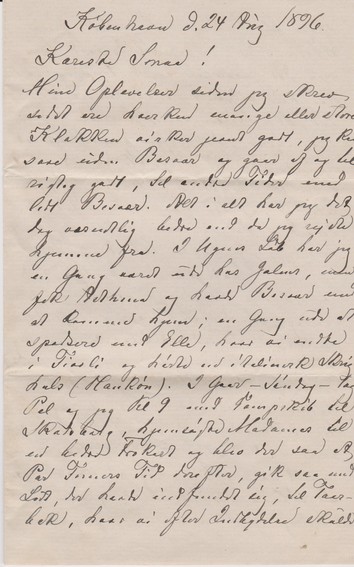 København d. 24 Aug 1896.
Kæreste Sonne!
Mine Oplevelser siden jeg skrev
sidst ere hverken mange eller store
Klokken virker jævnt godt, jeg
saae uden Besvær og gaaer af og til
rigtig godt, til andre Tider med
lidt Besvær. Alt i alt har jeg det
dog væsentlig bedre end da jeg rejste
hjemme fra. I Ugens Løb har jeg
en Gang været ude hos Jahns, men
fik Asthma og havde Besvær med
at komme hjem; en Gang ude at
spadsere med Elle, hvor vi endte
i Tivoli og hørte en italiensk
hals. I Gaar – Søndag – tog
Pel og jeg Kl 9 med Dampskib til
Skodsborg, hjemsøgte Madamer til
en bedre Frokost og blev der saa et
Par Timers Tid derefter, gik saa med
Lott, der havde indfundet sig, til Taar-
bæk, hvor vi efter Indbydelse skulde